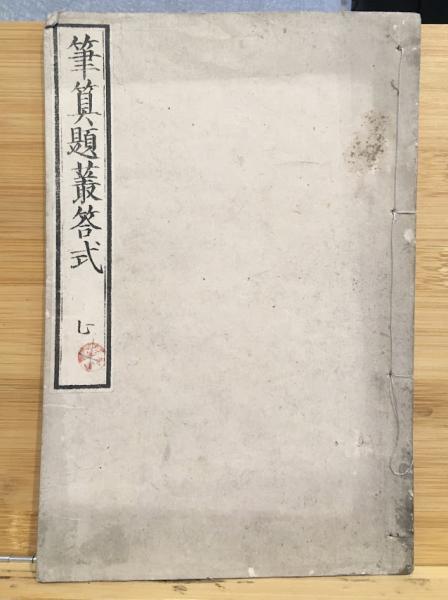 筆算題叢答式